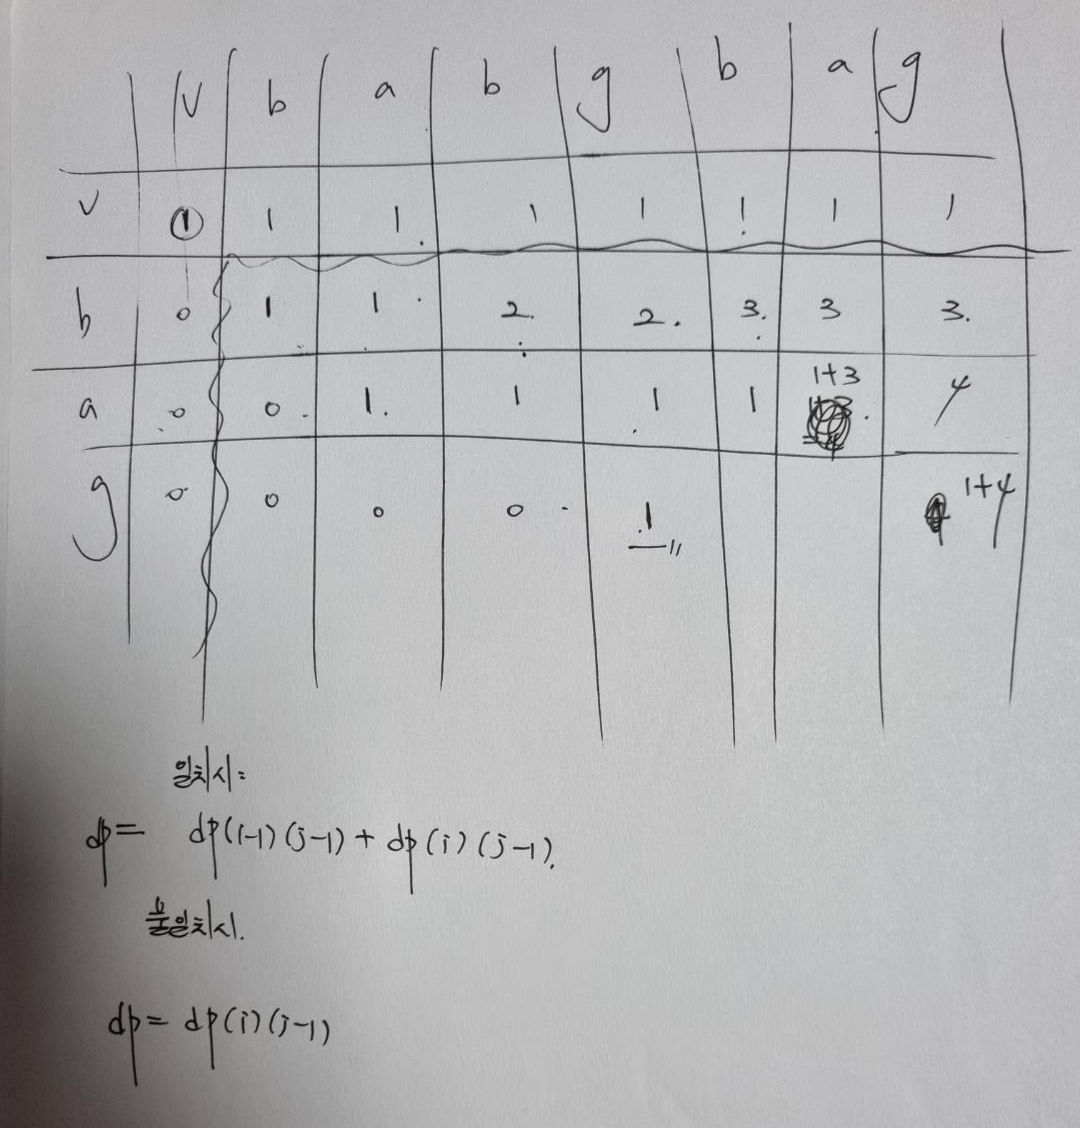 v b a b g b a g
v 1 1 1. 1 1 1. 1 1
b 0 1 1. 2. 2. 3. 3 3.
a 0 0. 1. 1 1 1 1+3 4
g 0 0 0 0. 1 1+4
일치시:
dp= dp(i-1)(j-1) + dp(i)(j-1).
불일치시.
dp= dp(i)(j-1)